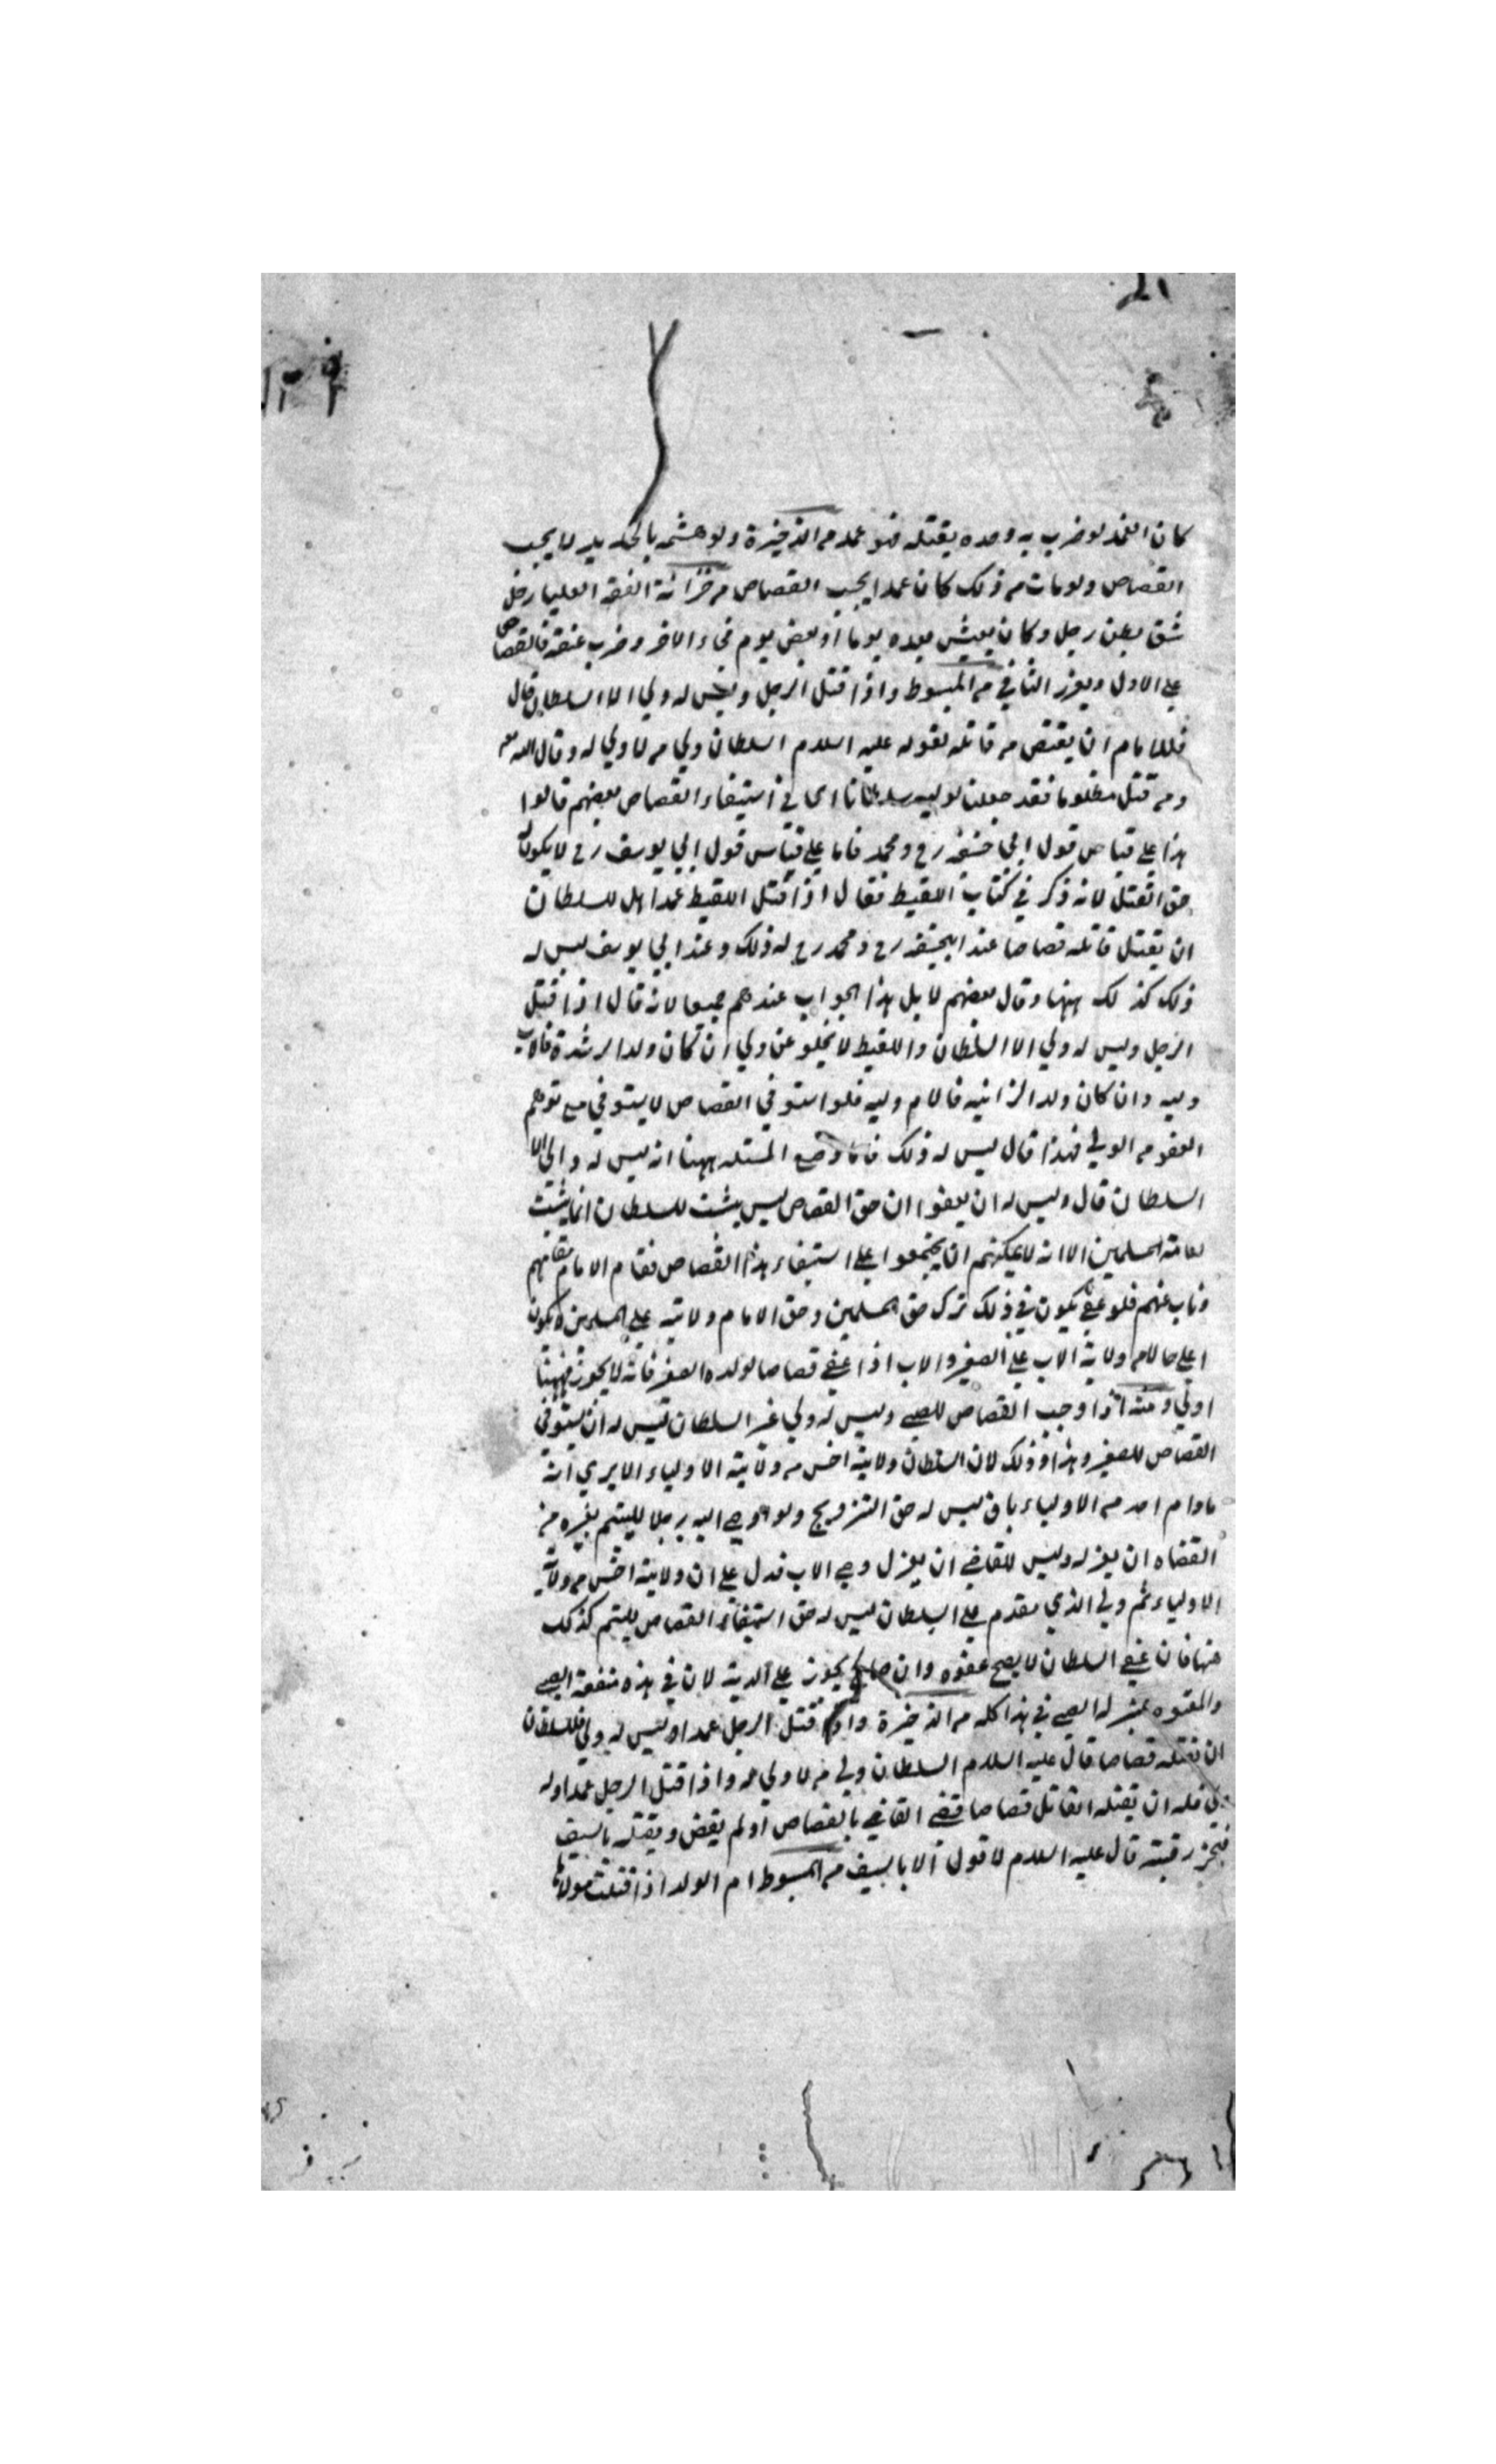 كان الغمد لو ضرب به وحده يقتله فهو عمد من الذخيرة ولو هشمه بالحديد لا يجب
القصاص ولو مات من ذلك كان عمدا يجب القصاص من خزانة الفقه العليا رجل
شق بطن رجل وكان يعيش بعده يوما او بعض يوم فجاء الاخر وضرب عنقه فالقصاص
علي الاول ويعزر الثاني من المبسوط واذا قتل الرجل وليس له ولي الا السلطان قال
فللامام ان يقتص من قاتله لقوله عليه السلام السلطان ولي من لا ولي له وقال الله تع
ومن قتل مظلوما فقد جعلنا لوليه سلطانا اي في استيفاء القصاص بعضهم قالوا
هذا علي قياس قول ابي حنيفه رح ومحمد فاما علي قياس قول ابي يوسف رح لا يكون له
حق القتل لانه ذكر في كتاب اللقيط فقال اذا قتل اللقيط عمدا هل للسلطان
ان يقتل قاتله قصاصا عند ابيحنيفه رح ومحمد رح له ذلك وعند ابي يوسف ليس له
ذلك كذلك ههنا وقال بعضهم لا بل هذا الجواب عندهم جميعا لانه قال اذا قتل
الرجل وليس له ولي الا السلطان واللقيط لا يخلو عن ولي ان كان ولد الرشدة فالاب
وليه وان كان ولد الزانيه فالام وليه فلو استوفي القصاص لا يستوفي مع توهم
العفو من الولي فهذا قال ليس له ذلك فاما وضع المسئله ههنا انه ليس له والي الا
السلطان قال وليس له ان يعفوا ان حق القصاص ليس يثبت للسلطان انما يثبت
لعامة المسلمين الا انه لا يمكنهم ان يجتمعوا علي استيفاء هذا القصاص فقام الامام مقامهم
وناب عنهم فلو عفي يكون في ذلك ترك حق المسلمين وحق الامام ولايته علي المسلمين لا يكون
اعلي حالا من ولاية الاب علي الصغير والاب اذا عفي قصاصا لولده الصغير فانه لا يجوز فههنا
اولي ومنه اذا وجب القصاص للصبي وليس له ولي غير السلطان ليس له ان يستوفي
القصاص للصغير وهذا وذلك لان السلطان ولايته اخس من ولاية الاولياء الا يري انه
مادام احد من الاولياء باق ليس له حق التزويج ولو اوصي اليه رجلا لليتيم بغيره من
القضاه ان يعزله وليس للقاضي ان يعزل وصي الاب فدل علي ان ولايته اخس من ولاية
الاولياء ثم ولي الذي مقدم علي السلطان ليس له حق استيفاء القصاص لليتيم كذلك
ههنا فان عفي السلطان لا يصح عفوه وان صالح يجوز علي الدية لان في هذه منفعة الصبي
والمعتوه بمنزلة الصبي في هذا كله من الذخيرة واذا قتل الرجل عمدا وليس له ولي فللسلطان
ان يقتله قصاصا قال عليه السلام السلطان ولي من لا ولي له واذا قتل الرجل عمدا وله
ولي فله ان يقتله القاتل قصاصا قضي القاضي بالقصاص او لم يقض ويقتله بالسيف
فيحز رقبته قال عليه السلام لا قول الا بالسيف من المبسوط ام الولد اذا قتلت مولاها